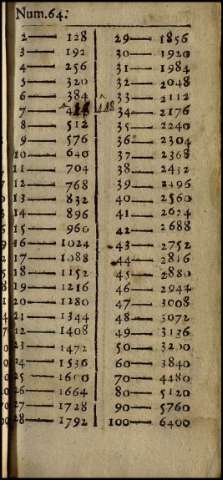 Num. 64.
2—128
3—192
4—256
5—320
6—384
7—
8—512
9—576
10—640
11—704
12—768
13—832
14—896
15—960
16—1024
17—1088
18—1152
19—1216
20—1280
21—1344
22—1408
23—1472
24—1536
25—1600
26—1664
27—1728
28—1792
29—1856
30—1920
31—1984
32—2048
33—2112
34—2176
35—2240
36—2304
37—2368
38—2432
39—2496
40—2560
41—2624
42—2688
43—2752
44—2816
45—2880
46—2944
47—3008
48—3072
49—3136
50—3200
60—3840
70—4480
80—5120
90—5760
100—6400